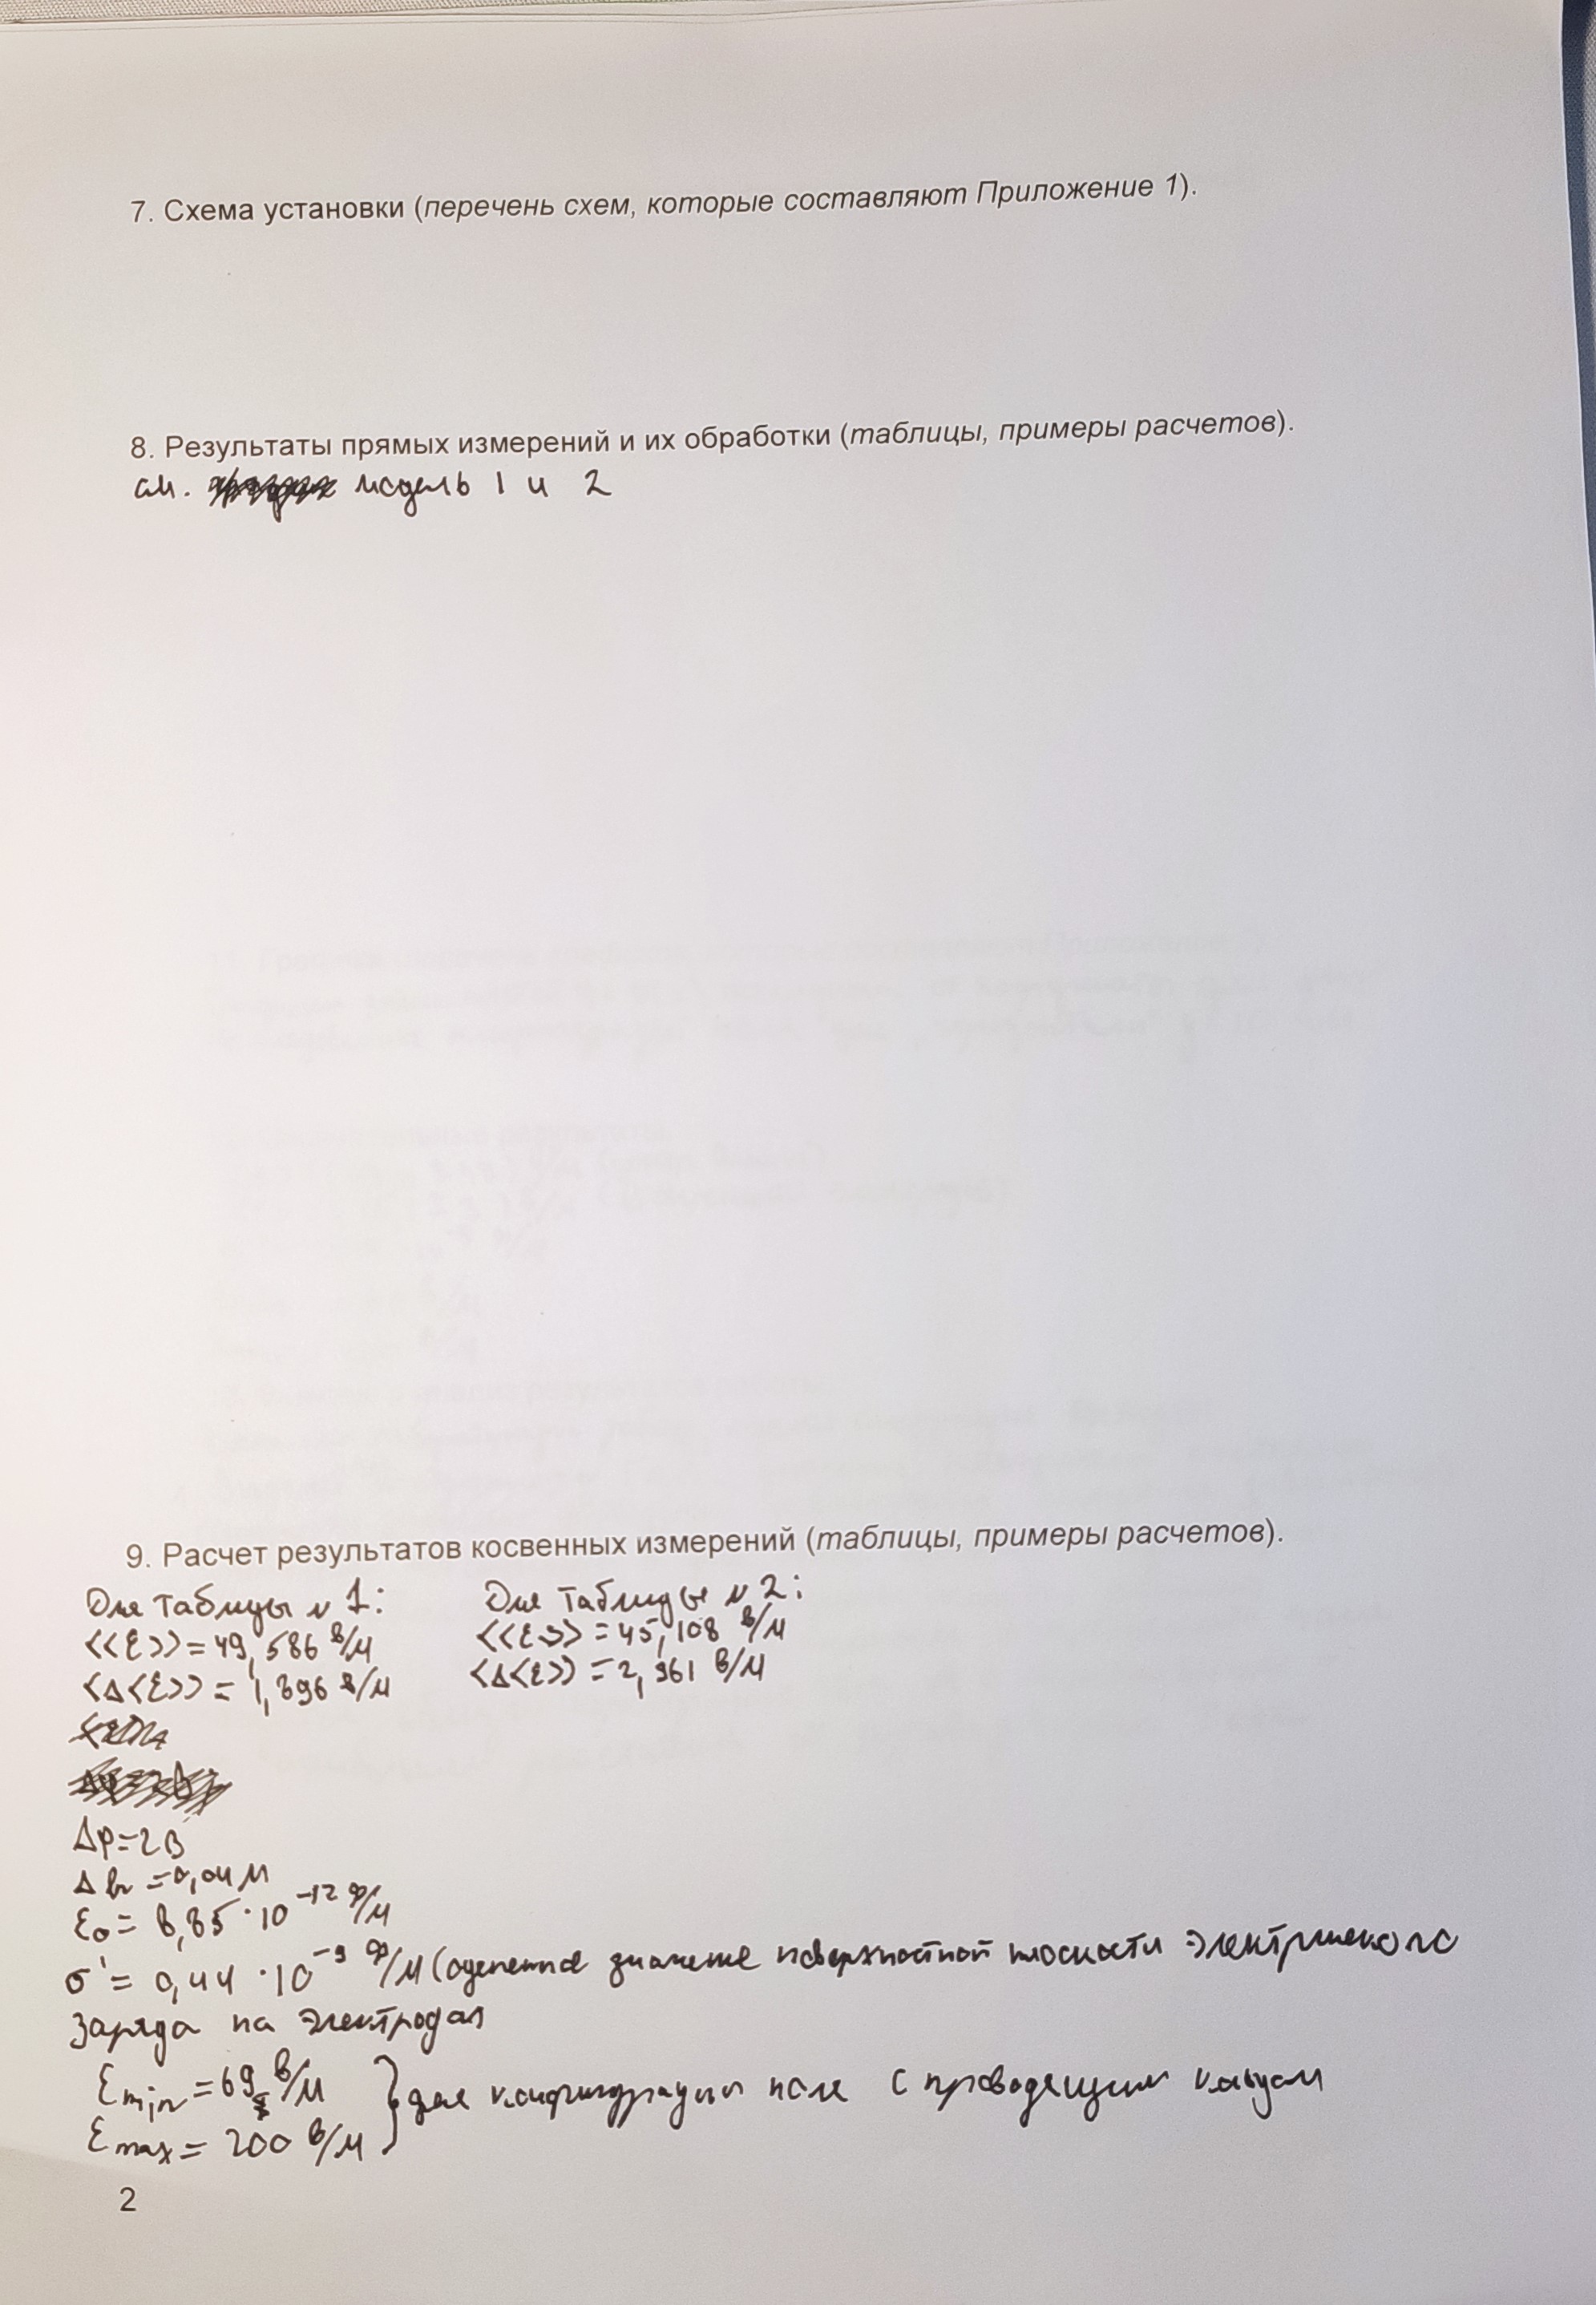 7. Схема установки (перечень схем, которые составляют Приложение 1).
8. Результаты прямых измерений и их обработки (таблицы, примеры расчетов).
см. модель 1 и 2
9. Расчет результатов косвенных измерений (таблицы, примеры расчетов).
Для таблицы № 1: Для таблицы № 2:
<<E>> = 49,586 В/м <<E>> = 45,108 В/м
<Δ<E>> = 1,896 В/м <Δ<E>> = 2,961 В/м
Δφ=2В
Δln = 0,04 м
ε0 = 8,85·10^-12 Ф/м
σ' = 0,44·10^-9 Ф/м (оцененное значение поверхностной плоскости электрического
заряда на электродах
Emin = 69 В/м
для конфигурации поля с проводящим кольцом
Emax = 200 В/м
2